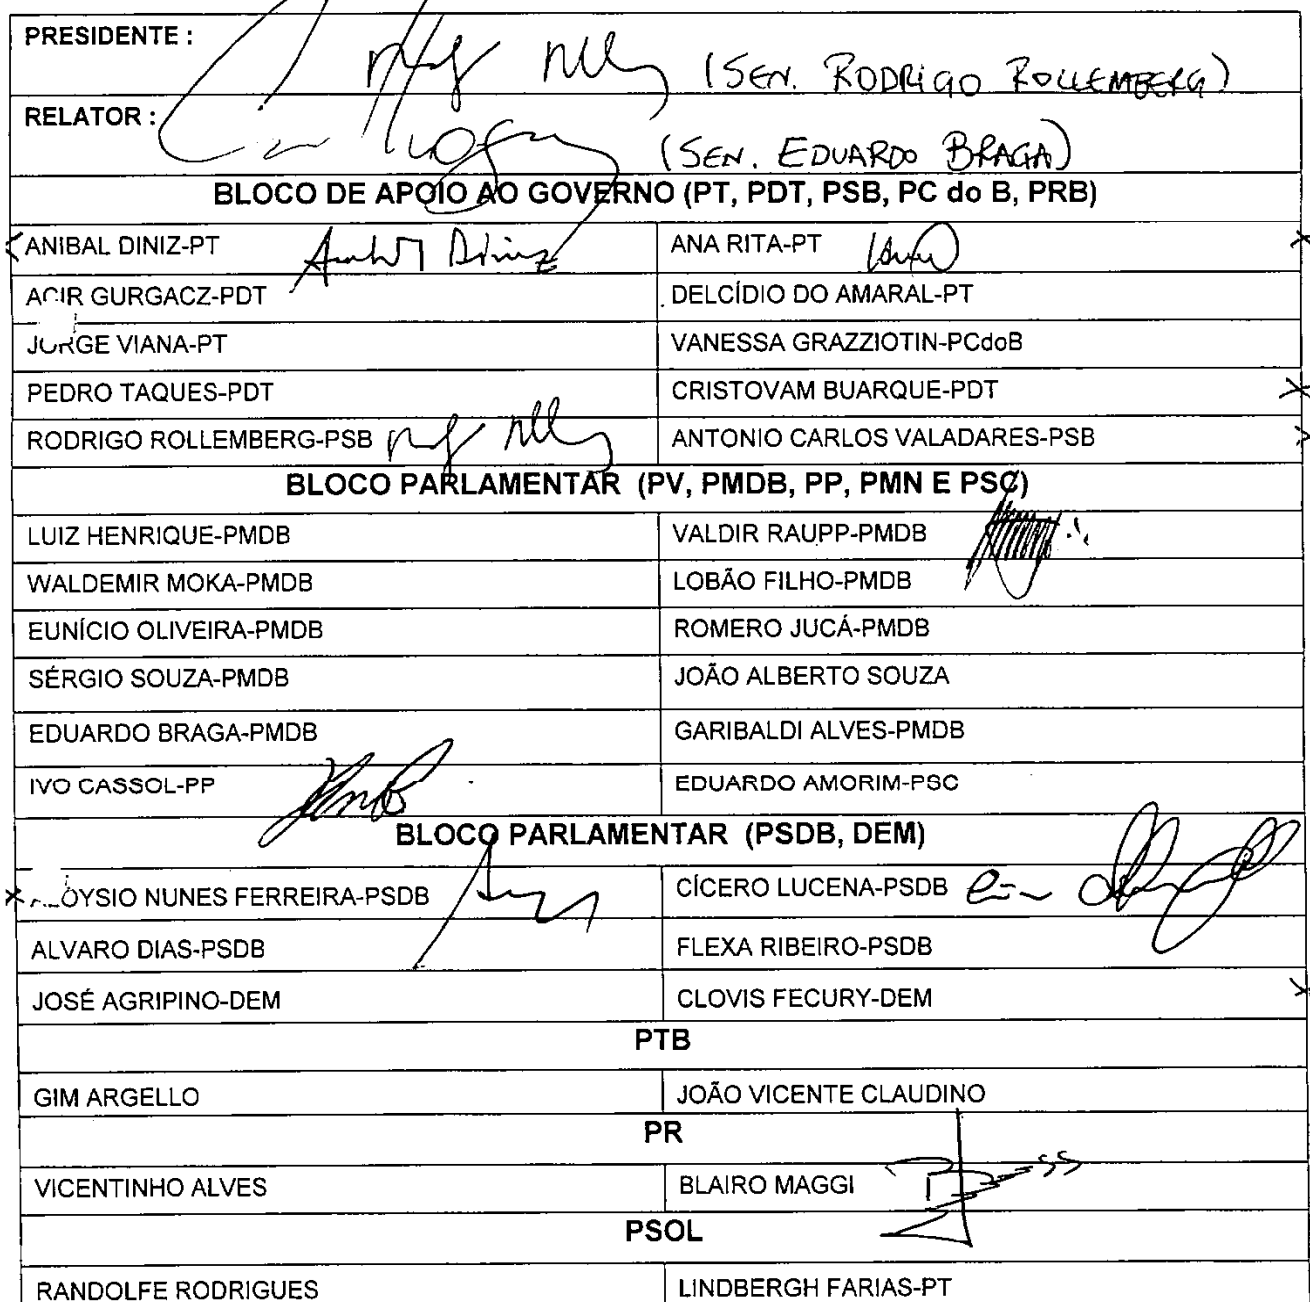 PRESIDENTE :
(SEN. RODRIGO ROLLEMBERG)
RELATOR :
(SEN. EDUARDO BRAGA)
BLOCO DE APOIO AO GOVERNO (PT, PDT, PSB, PC do B, PRB)
ANIBAL DINIZ-PT Anibal Diniz ANA RITA-PT
ACIR GURGACZ-PDT DELCÍDIO DO AMARAL-PT
JORGE VIANA-PT VANESSA GRAZZIOTIN-PCdoB
PEDRO TAQUES-PDT CRISTOVAM BUARQUE-PDT
RODRIGO ROLLEMBERG-PSB ANTONIO CARLOS VALADARES-PSB
BLOCO PARLAMENTAR (PV, PMDB, PP, PMN E PSC)
LUIZ HENRIQUE-PMDB VALDIR RAUPP-PMDB
WALDEMIR MOKA-PMDB LOBÃO FILHO-PMDB
EUNÍCIO OLIVEIRA-PMDB ROMERO JUCÁ-PMDB
SÉRGIO SOUZA-PMDB JOÃO ALBERTO SOUZA
EDUARDO BRAGA-PMDB GARIBALDI ALVES-PMDB
IVO CASSOL-PP EDUARDO AMORIM-PSC
BLOCO PARLAMENTAR (PSDB, DEM)
ALOYSIO NUNES FERREIRA-PSDB CÍCERO LUCENA-PSDB
ALVARO DIAS-PSDB FLEXA RIBEIRO-PSDB
JOSÉ AGRIPINO-DEM CLOVIS FECURY-DEM
PTB
GIM ARGELLO JOÃO VICENTE CLAUDINO
PR
VICENTINHO ALVES BLAIRO MAGGI
PSOL
RANDOLFE RODRIGUES LINDBERGH FARIAS-PT